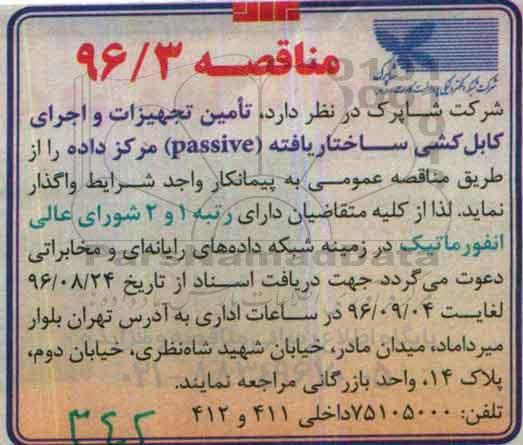 مناقصه ۹۶/۳
شاپرک
شرکت شاپرک در نظر دارد، تأمین تجهیزات و اجرای
کابل‌کشی ساختاریافته (passive) مرکز داده را از
طریق مناقصه عمومی به پیمانکار واجد شرایط واگذار
نماید. لذا از کلیه متقاضیان دارای رتبه ۱ و ۲ شورای عالی
انفورماتیک در زمینه شبکه داده‌های رایانه‌ای و مخابراتی
دعوت می‌گردد جهت دریافت اسناد از تاریخ ۹۶/۰۸/۲۴
لغایت ۹۶/۰۹/۰۴ در ساعات اداری به آدرس تهران بلوار
میرداماد، میدان مادر، خیابان شهید شاه‌نظری، خیابان دوم،
پلاک ۱۴، واحد بازرگانی مراجعه نمایند.
تلفن: ۷۵۱۰۵۰۰۰داخلی ۴۱۱ و ۴۱۲
ParsNamadData
۳۴۲